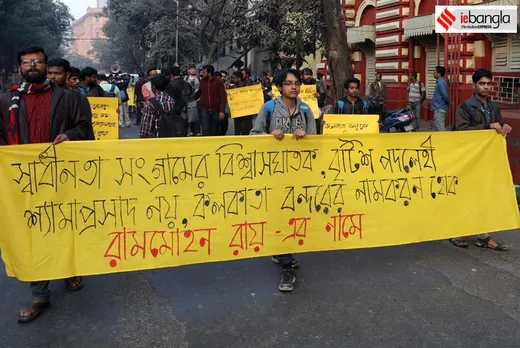 iebangla
The Indian EXPRESS
স্বাধীনতা সংগ্রামের বিশ্বাসঘাতক, বৃটিশ পদলেহী
শ্যামাপ্রসাদ নয়, কলকাতা বন্দরের নামকরন হোক
রামমোহন রায় -এর নামে